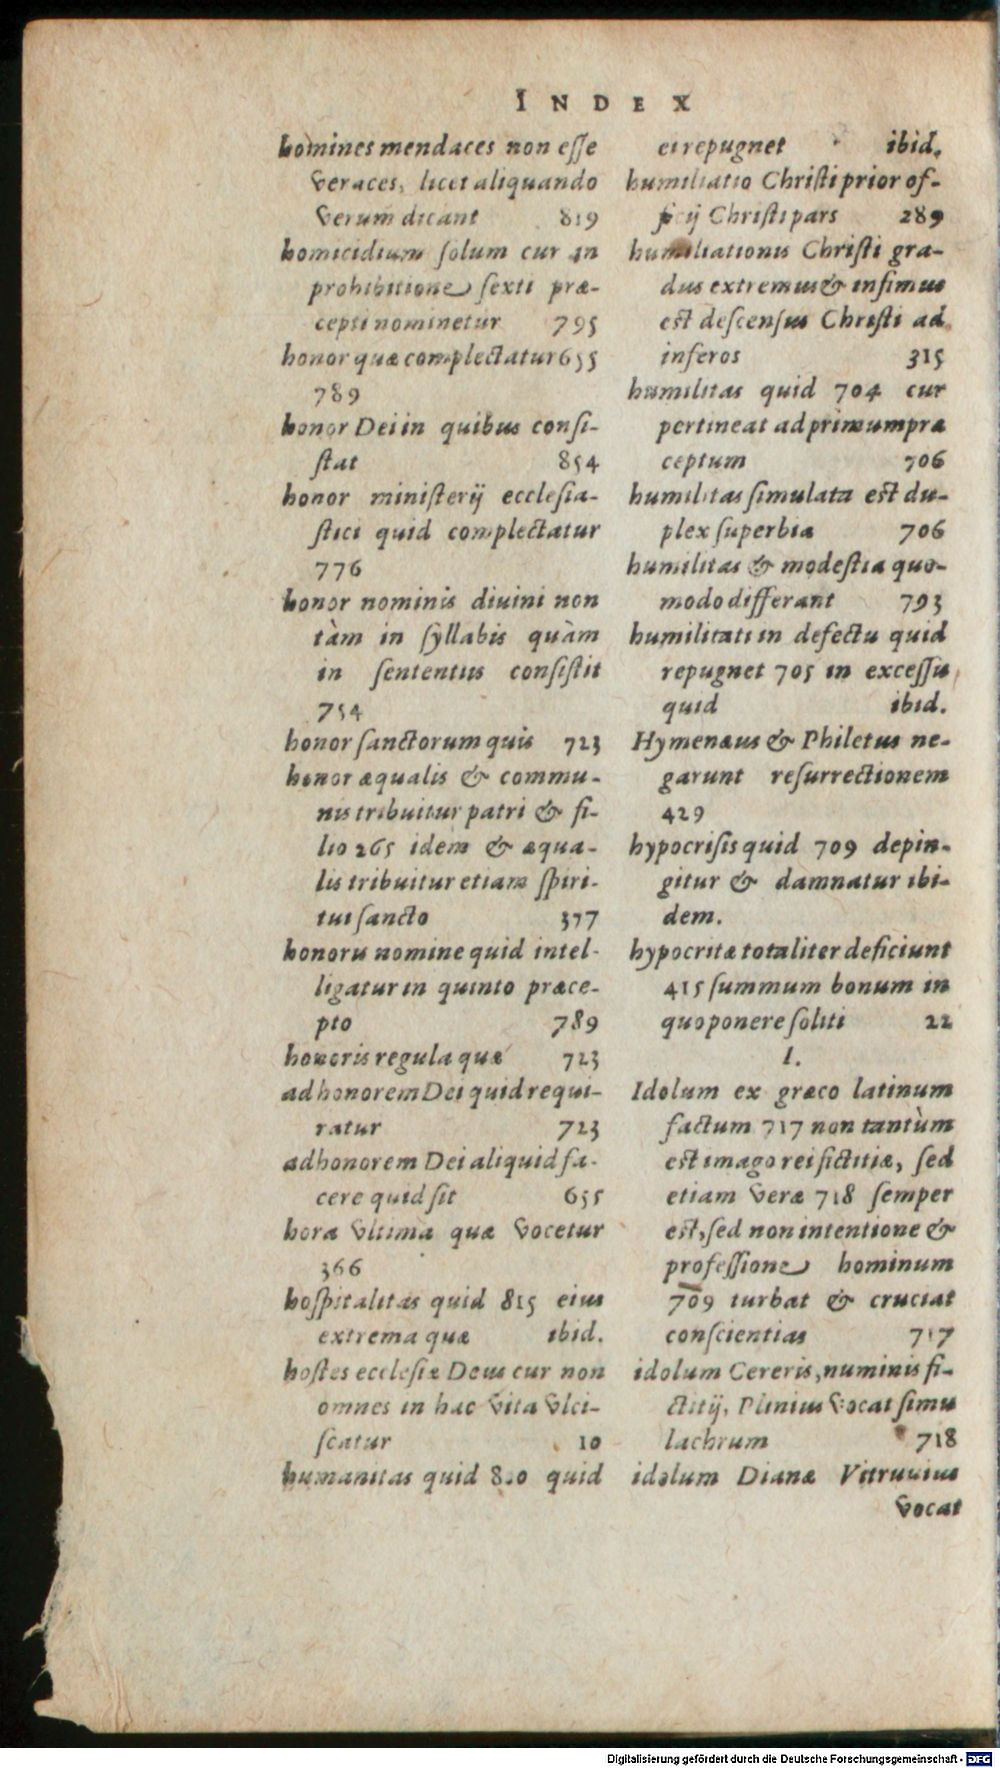 INDEX
homines mendaces non esse
veraces, licet aliquando
verum dicant 819
homicidium solum cur in
prohibitione sexti præ-
cepti nominetur 795
honor quæ complectatur 655
789
honor Dei in quibus consi-
stat 854
honor ministerij ecclesia-
stici quid complectatur
776
honor nominis diuini non
tàm in syllabis quàm
in sententiis consistit
754
honor sanctorum quis 723
honor æqualis & commu-
nis tribuitur patri & fi-
lio 265 idem & æqua-
lis tribuitur etiam spiri-
tui sancto 377
honoris nomine quid intel-
ligatur in quinto præce-
pto 789
honoris regula quæ 723
ad honorem Dei quid requi-
ratur 723
ad honorem Dei aliquid fa-
cere quid sit 655
hora vltima quæ vocetur
366
hospitalitas quid 815 eius
extrema quæ ibid.
hostes ecclesiæ Deus cur non
omnes in hac vita vlci-
scatur 10
humanitas quid 820 quid
ei repugnet ibid.
humiliatio Christi prior of-
ficij Christi pars 289
humiliationis Christi gra-
dus extremus & infimus
est descensus Christi ad
inferos 315
humilitas quid 704 cur
pertineat ad primum præ
ceptum 706
humilitas simulata est du-
plex superbia 706
humilitas & modestia quo-
modo differant 793
humilitati in defectu quid
repugnet 705 in excessu
quid ibid.
Hymenæus & Philetus ne-
garunt resurrectionem
429
hypocrisis quid 709 depin-
gitur & damnatur ibi-
dem.
hypocritæ totaliter deficiunt
415 summum bonum in
quo ponere soliti 22
I.
Idolum ex græco latinum
factum 717 non tantùm
est imago rei fictitiæ, sed
etiam veræ 718 semper
est, sed non intentione &
professione hominum
709 turbat & cruciat
conscientias 717
idolum Cereris, numinis fi-
ctitij, Plinius vocat simu
lachrum 718
idolum Dianæ Vitruuius
vocat
Digitalisierung gefördert durch die Deutsche Forschungsgemeinschaft - DFG